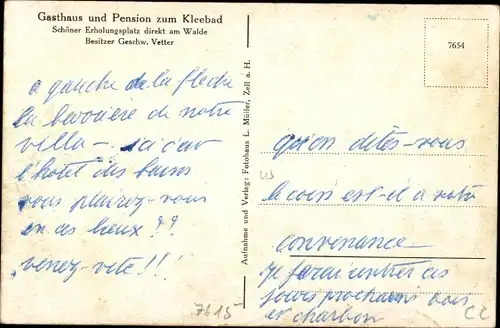 Gasthaus und Pension zum Kleebad
Schöner Erholungsplatz direkt am Walde
Besitzer Geschw. Vetter
7654
a gauche de la fleche
la de notre
villa - ça c'est
l'hôtel des bains
vous plairez-vous
en ces lieux??
venez-vite!!
Aufnahme und Verlag: Fotohaus L. Müller, Zell a. H.
qu'en dites-vous
le coin est-il a votre
convenance -
je ferai rentrer ces
jours prochains bois
et charbon
7615